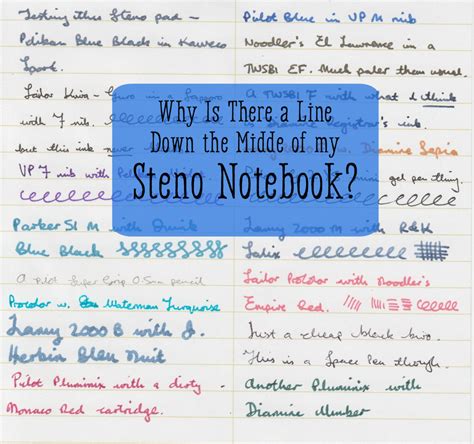 Why Is There a Line
Down the Midde of my
Steno Notebook?
Testing this Steno pad –
Pelikan Blue Black in Kaweco
Sport.
Sailor Kiwa-Guro in a
with F nib.
but this ink never
VP F nib with
Parker 51 M with Quink
Blue Black
A pilot Super Grip 0.5mm pencil
Proctor w. Waterman Turquoise
Lamy 2000 B with J.
Herbin Bleu Nuit
Pilot Pluminix with a dirty -
Monaco Red cartridge.
Pilot Blue in VP M nib
Noodler's El Lawrence in a
TWSBI EF. Much paler than usual.
A TWSBI F with what I think
is Diamine Registrar's ink.
Diamine Sepia
gel pen thing.
Lamy 2000 M with R&K
Salix
Sailor Proctor with Noodler's
Empire Red.
Just a cheap black biro.
This is a Space Pen though.
Another Pluminix with
Diamine Umber